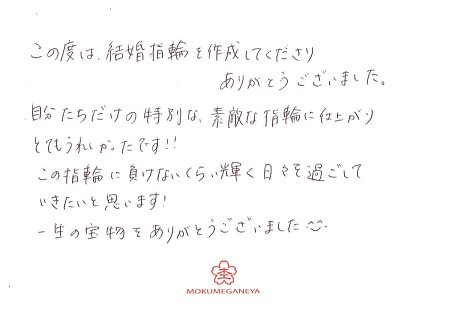 この度は、結婚指輪を作成してくださり
ありがとうございました。
自分たちだけの特別な、素敵な指輪に仕上がり
とてもうれしかったです!!
この指輪に負けないくらい輝く日々を過ごして
いきたいと思います!
一生の宝物をありがとうございました
MOKUMEGANEYA